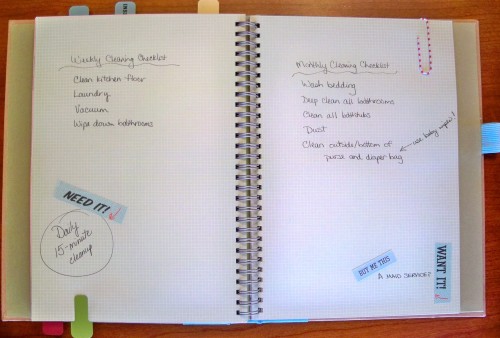 Weekly Cleaning Checklist
Clean kitchen floor
Laundry
Vacuum
Wipe down bathrooms
NEED IT!
Daily
15-minute
cleanup
Monthly Cleaning Checklist
Wash bedding
Deep clean all bathrooms
Clean all bathtubs
Dust
Clean outside/bottom of
purse and diaper bag
use baby wipes!
BUY ME THIS
A MAID SERVICE?
WANT IT!